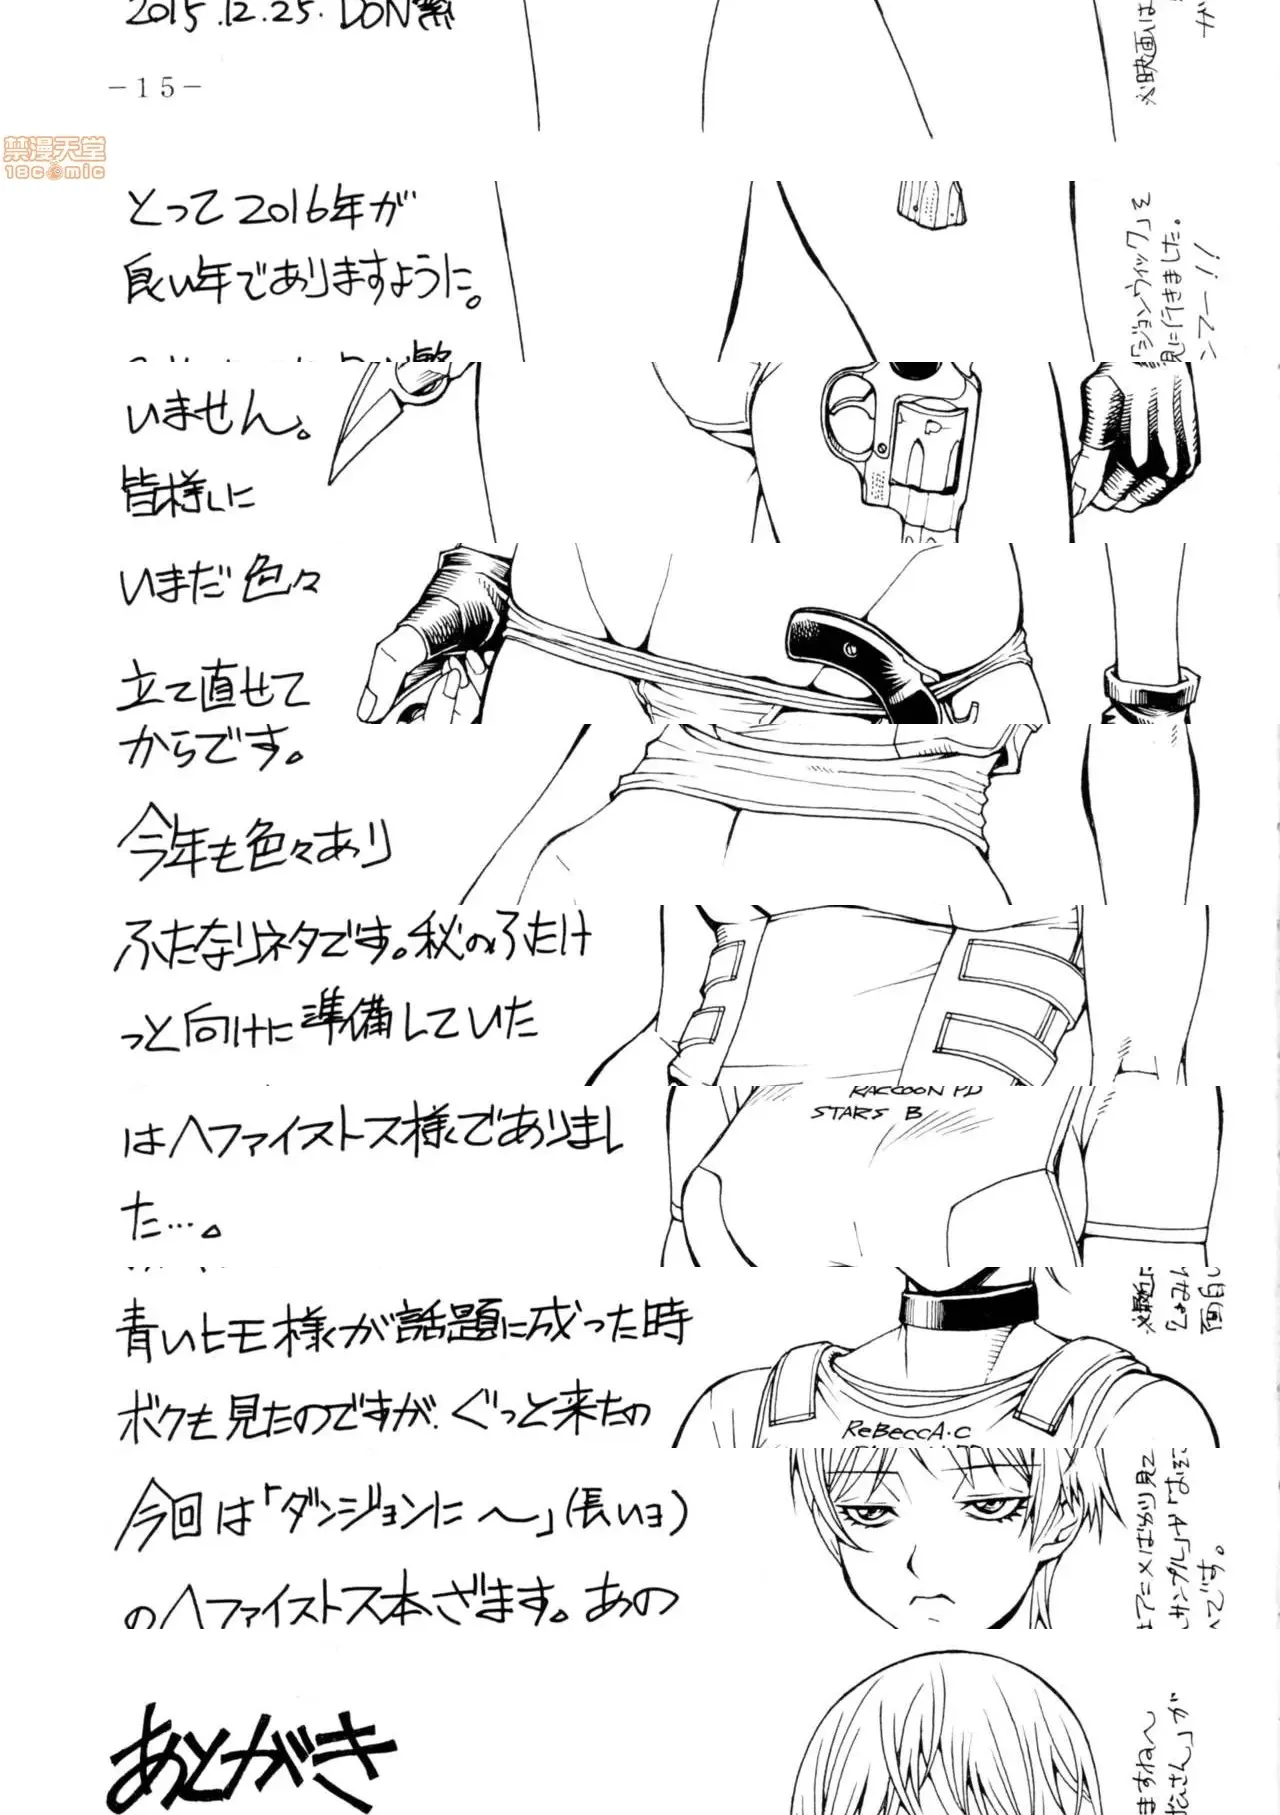 2015.12.25. DON繁
-15-
禁漫天堂
18comic
とって2016年が
良い年でありますように。
いません。
皆様に
いまだ色々
立て直せて
からです。
今年も色々あり
ふたなりネタです。秋のふたけ
っと向けに準備していた
はヘファイストス様くでありまし
た…。
青いヒモ様くが話題に成った時
ボクも見たのですが、ぐっと来たの
今回は「ダンジョンに〜」(長いヨ)
のヘファイストス本ざます。あの
あとがき
RACCOON PD
STARS B
ReBeccA・C
※映画は
「ジョンウィック」を
見に行きました。